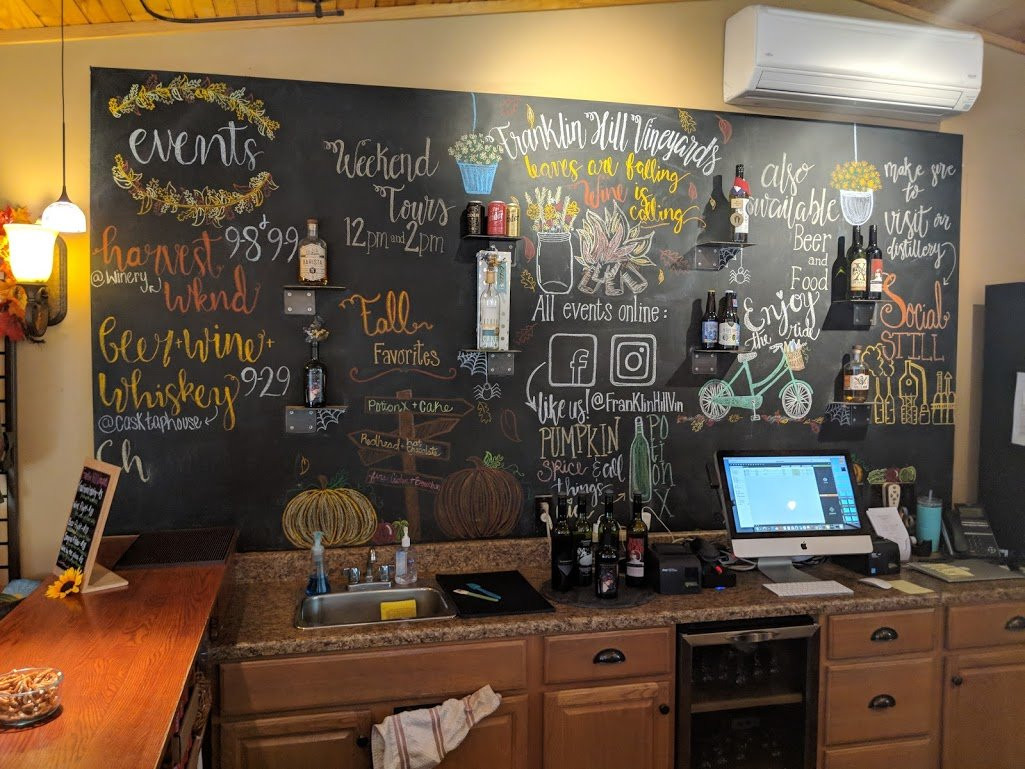 events
harvest
@winery
Wknd
9-8 & 9-9
beer + wine +
Whiskey
9-29
@casktaphouse
Ch
Weekend
Tours
12pm and 2pm
Fall
Favorites
Potion X + Cake
Redhead + hot
chocolate
Franklin Hill Vineyards
leaves are falling
Wine is
calling
All events online:
f
like us!
@FranklinHillVin
PUMPKIN
Spice & all
things
POTION
X
also
available
Beer
and
Food
Enjoy
the ride
make sure
to
visit our
distillery
Social
STILL